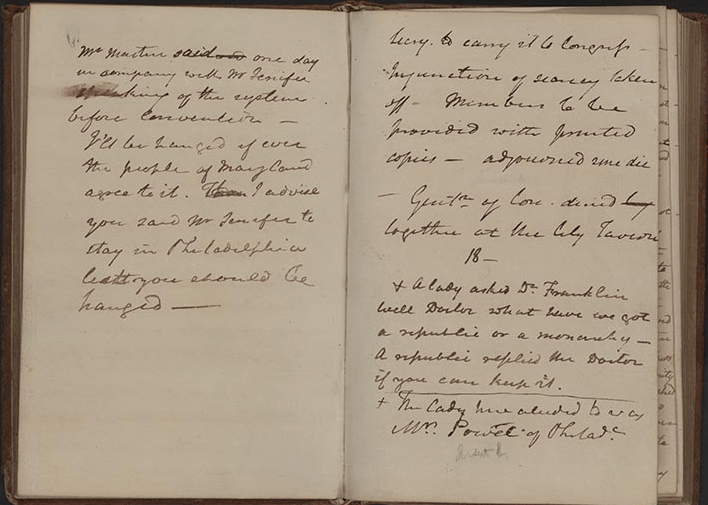 Mr Martin said one day
in company with Mr Jenifer
speaking of the system
before Convention —
I'll be hanged if ever
the people of Maryland
agree to it. I advise
you said Mr Jenifer to
stay in Philadelphia
lest you should be
hanged —
Secry. to carry it to Congress —
Injunction of secrecy taken
off — Members to be
provided with printed
copies — adjourned sine die
— Gentn. of Con. dined
together at the City Tavern
18 —
+ A lady asked Dr. Franklin
well Doctor what have we got
a republic or a monarchy —
A republic replied the Doctor
if you can keep it.
+ The Lady here aluded to was
Mrs. Powel of Philada.